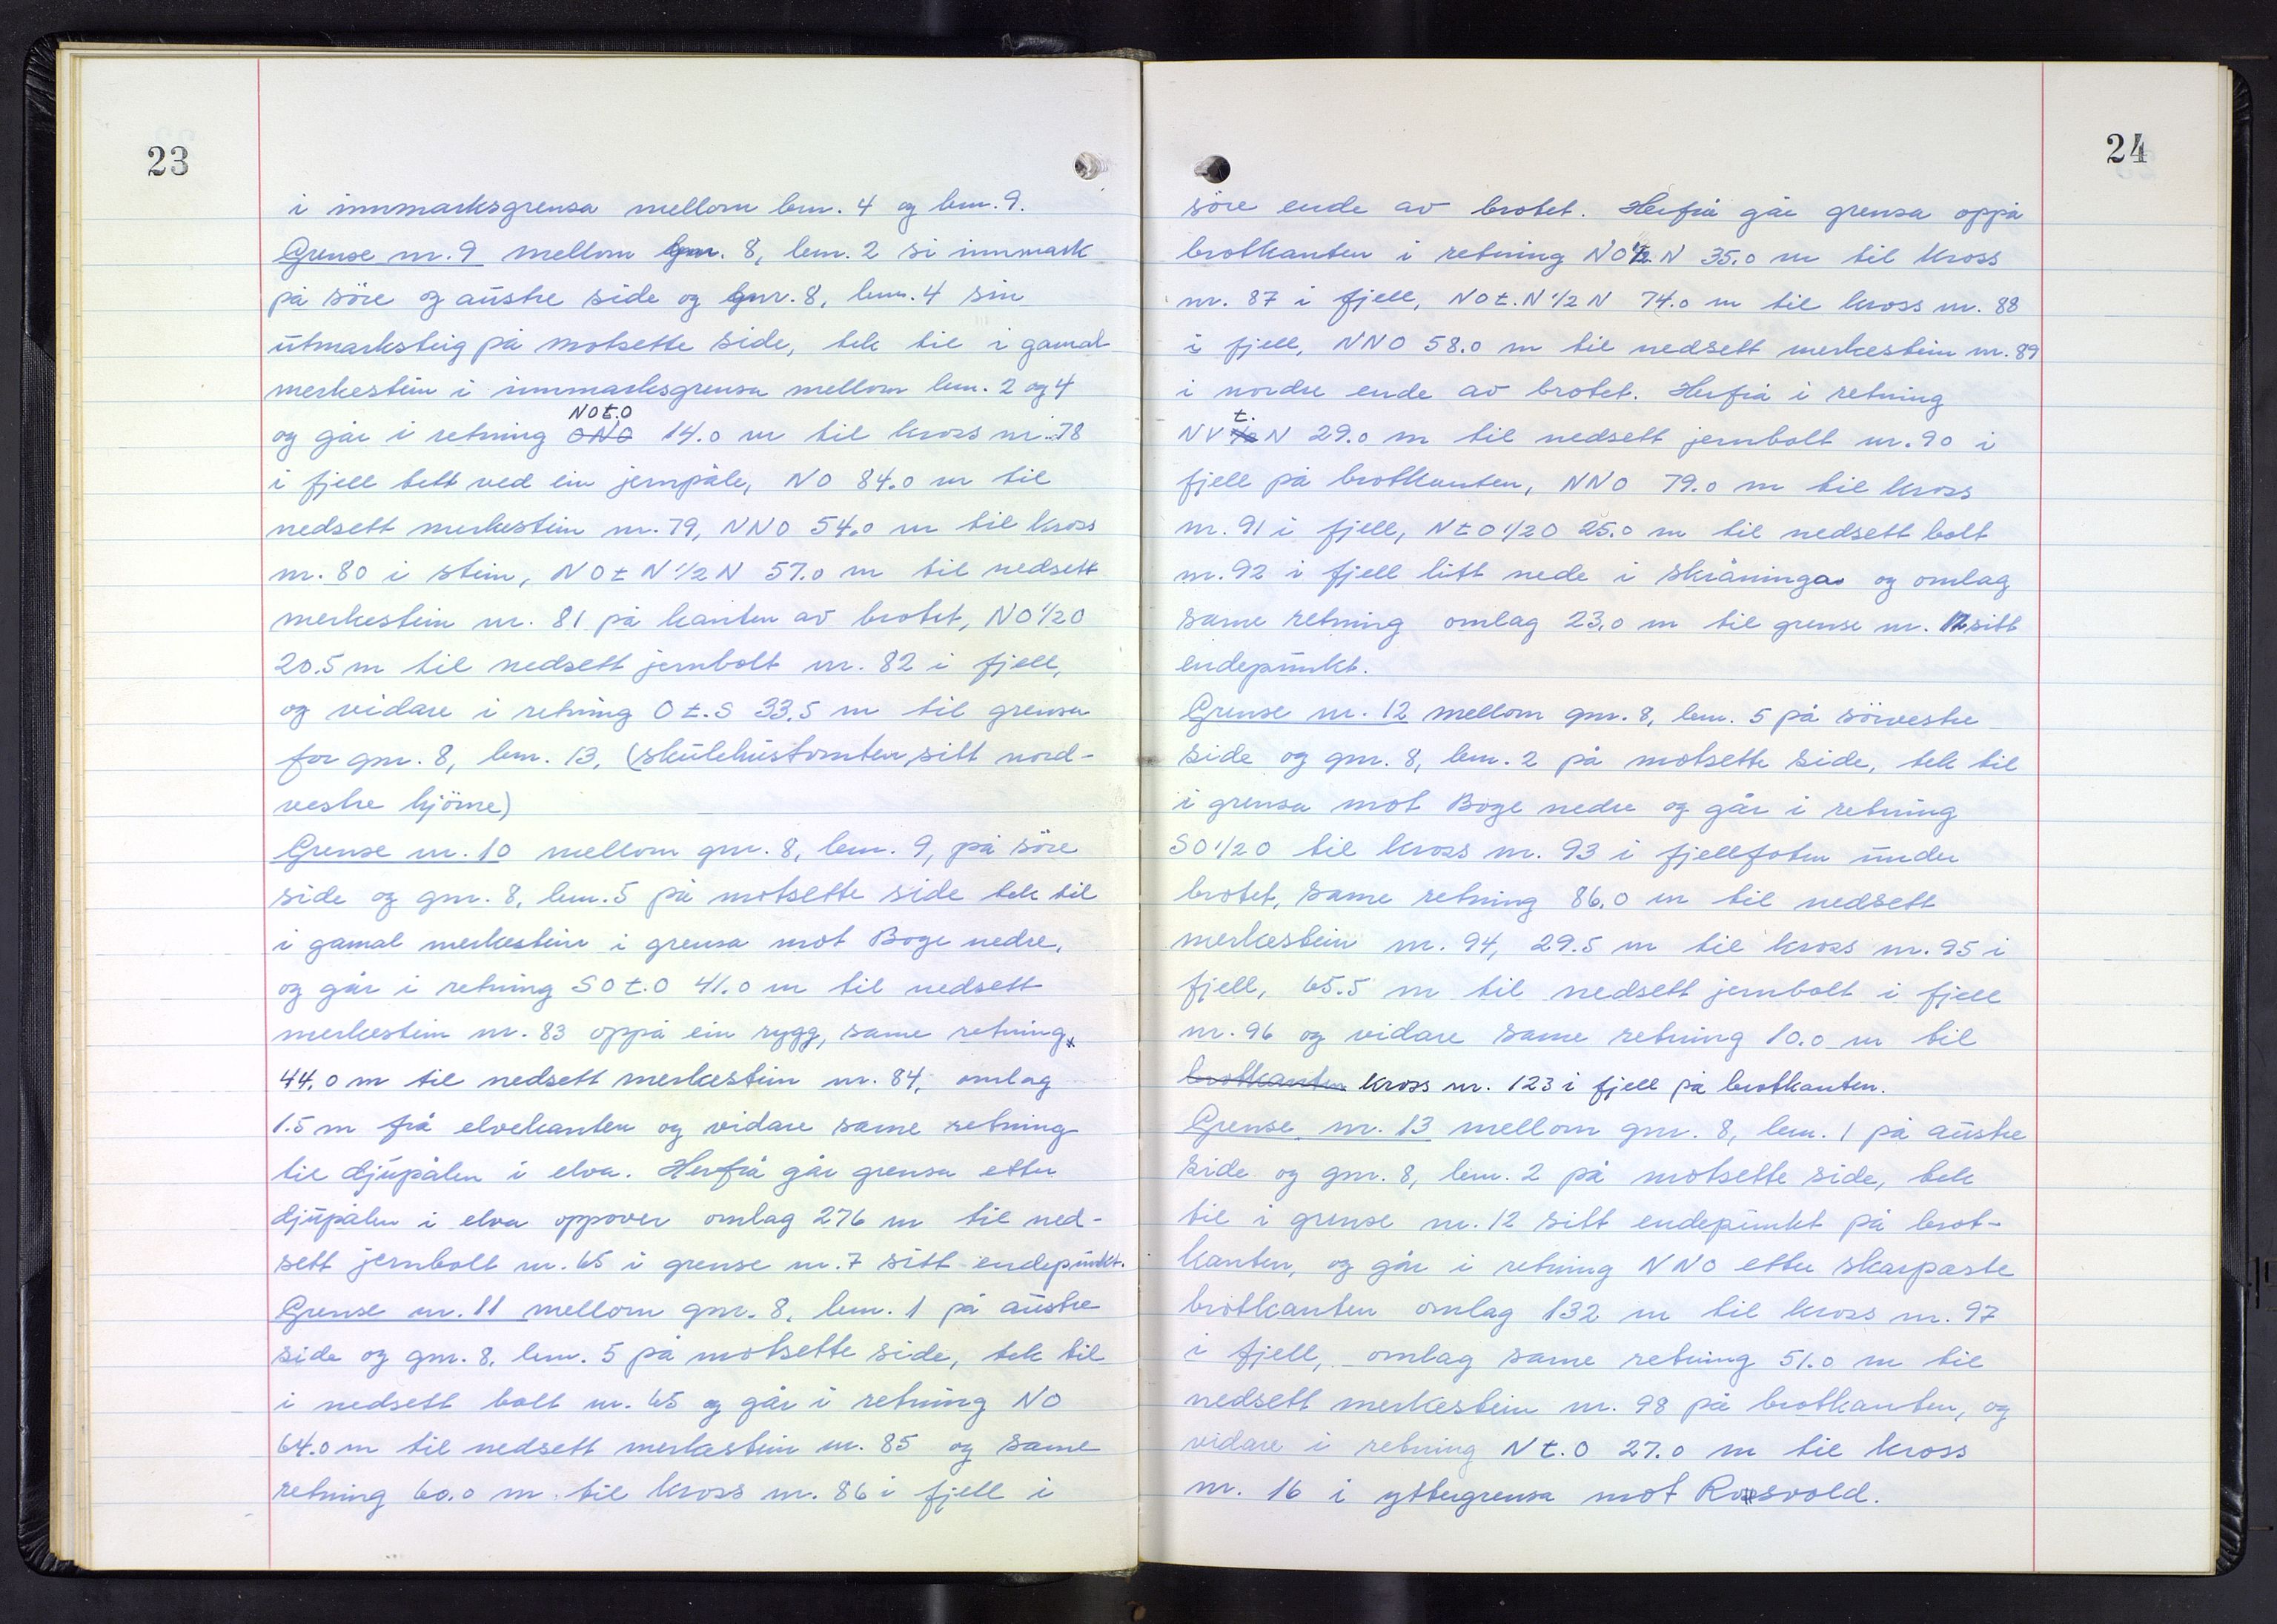 23
i innmarksgrensa mellom bnr. 4 og bnr. 9.
Grense nr. 9 mellom gnr. 8, bnr. 2 si innmark
på söre og austre side og gnr. 8, bnr. 4 sin
utmarksteig på motsette side, tek til i gamal
merkestein i innmarksgrensa mellom bnr. 2 og 4
NOt.O
og går i retning ONO 14.0 m til kross nr. 78
i fjell tett ved ein jernpåle, NO 84.0 m til
nedsett merkestein nr. 79, NNO 54.0 m til kross
nr. 80 i stein, NOt N 1/2 N 57.0 m til nedsett
merkestein nr. 81 på kanten av brotet, NO 1/2 O
20.5 m til nedsett jernbolt nr. 82 i fjell,
og vidare i retning O t. S 33.5 m til grensa
for gnr. 8, bnr. 13, (skulehustomten sitt nord-
vestre hjörne)
Grense nr. 10 mellom gnr. 8, bnr. 9, på söre
side og gnr. 8, bnr. 5 på motsette side tek til
i gamal merkestein i grensa mot Boge nedre,
og går i retning SO t. O 41.0 m til nedsett
merkestein nr. 83 oppå ein rygg, same retning
44.0 m til nedsett merkestein nr. 84, omlag
1.5 m frå elvekanten og vidare same retning
til djupålen i elva. Herfrå går grensa etter
djupålen i elva oppover omlag 276 m til ned-
sett jernbolt nr. 65 i grense nr. 7 sitt endepunkt.
Grense nr. 11 mellom gnr. 8, bnr. 1 på austre
side og gnr. 8, bnr. 5 på motsette side, tek til
i nedsett bolt nr. 65 og går i retning NO
64.0 m til nedsett merkestein nr. 85 og same
retning 60.0 m til kross nr. 86 i fjell i
24
söre ende av brotet. Herfrå går grensa oppå
brotkanten i retning NO 1/2 N 35.0 m til kross
nr. 87 i fjell, NOt. N 1/2 N 74.0 m til kross nr. 88
i fjell, NNO 58.0 m til nedsett merkestein nr. 89
i nordre ende av brotet. Herfrå i retning
t.
NV 1/2 N 29.0 m til nedsett jernbolt nr. 90 i
fjell på brotkanten, NNO 79.0 m til kross
nr. 91 i fjell, Nt O 1/2 O 25.0 m til nedsett bolt
nr. 92 i fjell litt nede i skråninga og omlag
same retning omlag 23.0 m til grense nr. 12 sitt
endepunkt.
Grense nr. 12 mellom gnr. 8, bnr. 5 på sörvestre
side og gnr. 8, bnr. 2 på motsette side, tek til
i grensa mot Boge nedre og går i retning
SO 1/2 O til kross nr. 93 i fjellfoten under
brotet, same retning 86.0 m til nedsett
merkestein nr. 94, 29.5 m til kross nr. 95 i
fjell, 65.5 m til nedsett jernbolt i fjell
nr. 96 og vidare same retning 10.0 m til
brotkanten kross nr. 123 i fjell på brotkanten.
Grense nr. 13 mellom gnr. 8, bnr. 1 på austre
side og gnr. 8, bnr. 2 på motsette side, tek
til i grense nr. 12 sitt endepunkt på brot-
kanten, og går i retning NNO etter skarpaste
brotkanten omlag 132 m til kross nr. 97
i fjell, omlag same retning 51.0 m til
nedsett merkestein nr. 98 på brotkanten, og
vidare i retning N t. O 27.0 m til kross
nr. 16 i yttergrensa mot